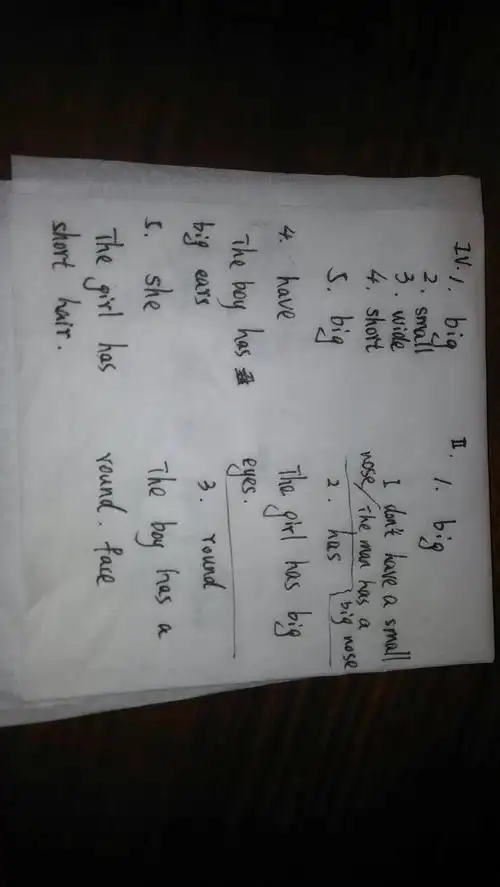 IV. 1. big
2. small
3. wide
4. short
5. big
4. have
The boy has
big ears
5. she
The girl has
short hair.
II. 1. big
I don't have a small
nose / The man has a
big nose
2. has
The girl has big
eyes.
3. round
The boy has a
round. face